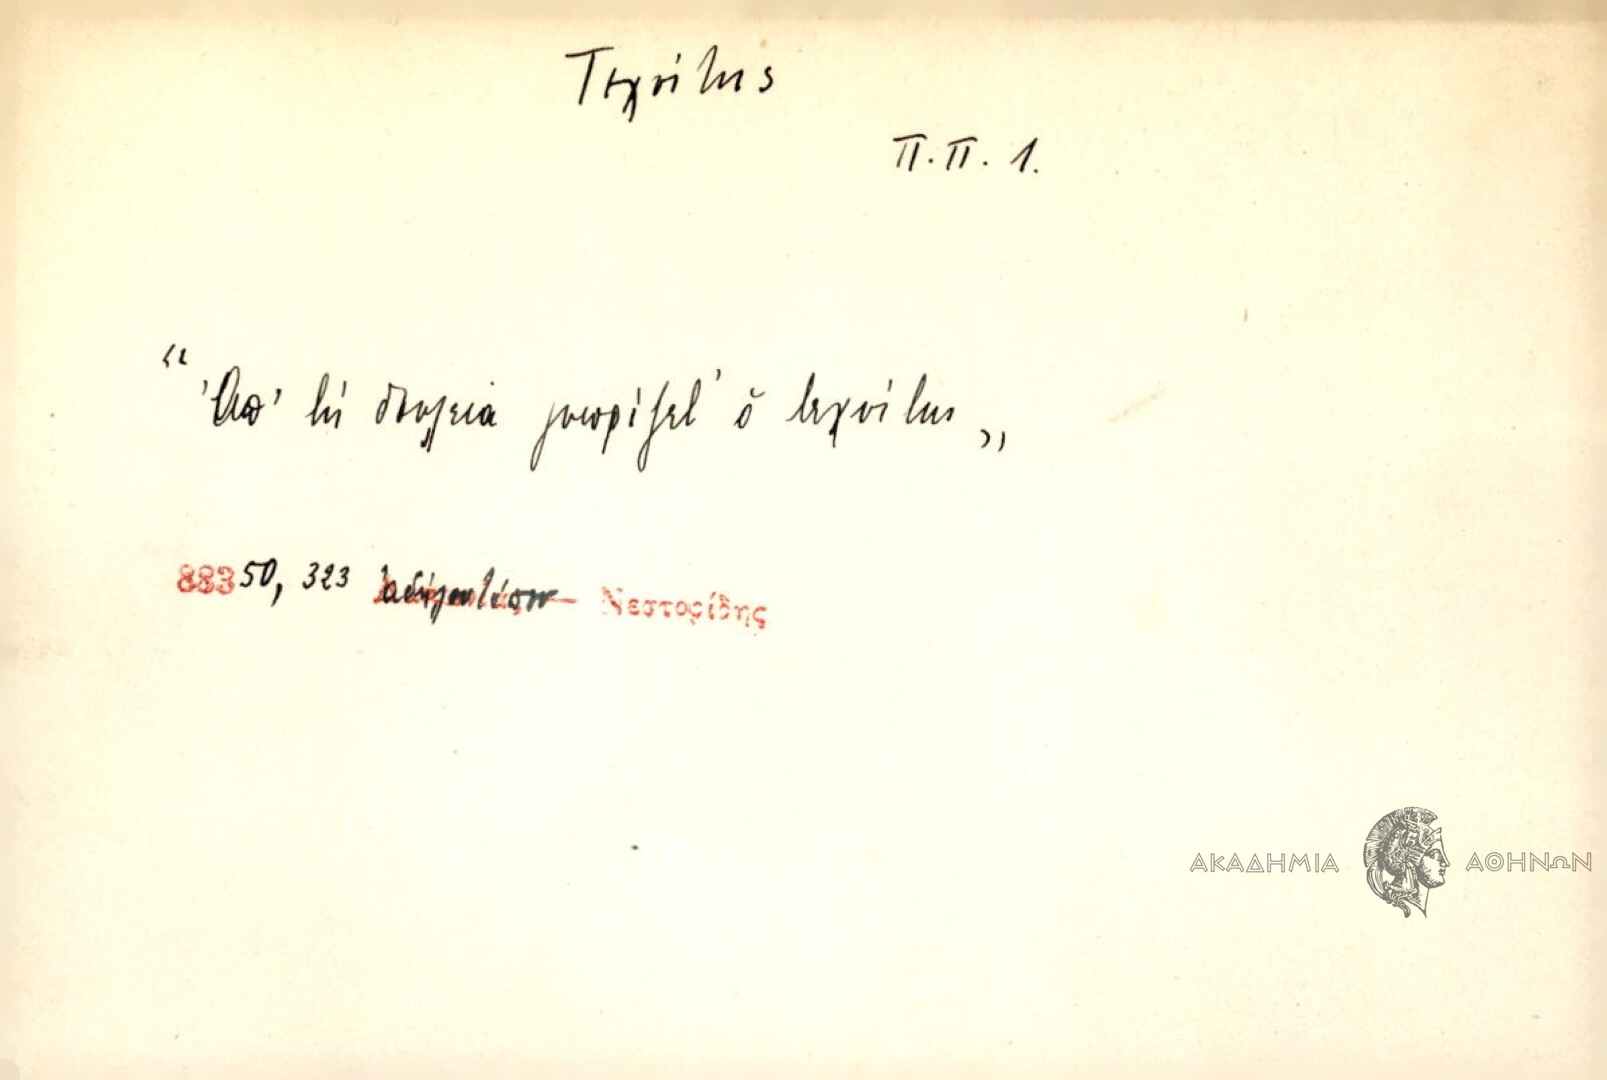 Τεχνίτης
Π.Π. 1.
“ Ἀπ' τὴ δουλειὰ γνωρίζετ' ὁ τεχνίτης „
883 50, 323 Νεστορίδης
ΑΚΑΔΗΜΙΑ ΑΘΗΝΩΝ